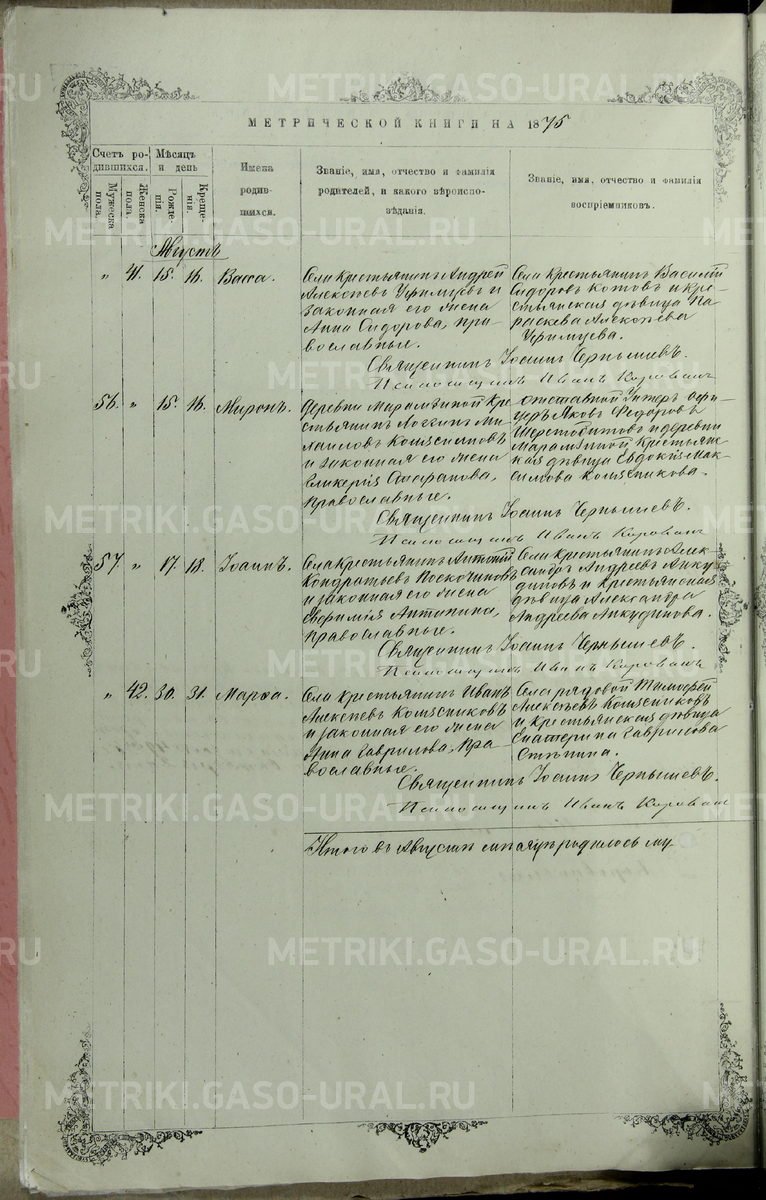 METRIKI.GASO-URAL.RU
МЕТРИЧЕСКОЙ КНИГИ НА 1875
Счетъ ро-
дившихся.
Мужеска
пола.
Женска
пола.
Мѣсяцъ
и день
Рожде-
нія.
Креще-
нія.
Имена
родив-
шихся.
Званіе, имя, отчество и фамилія
родителей, и какого вѣроиспо-
вѣданія.
Званіе, имя, отчество и фамилія
воспріемниковъ.
Августъ
" 41. 15. 16. Васса.
Села крестьянинъ Андрей
Алексѣевъ Уфимцевъ и
законная его жена
Анна Сидорова, пра-
вославные.
Села крестьянинъ Василій
Сидоровъ Котовъ и кре-
стьянская дѣвица Па-
раскева Алексѣева
Уфимцева.
Священникъ Іоаннъ Чернышевъ.
Псаломщикъ Иванъ
56. " 15. 16. Миронъ.
Деревни Марамзиной кре-
стьянинъ Логгинъ Ми-
хаиловъ Колясниковъ
и законная его жена
Гликерія
Православные.
отставной Унтеръ офи-
церъ Яковъ Федоровъ
Шерстобитовъ и деревни
Марамзиной крестьян-
ская дѣвица Евдокія Мак-
симова Колясникова.
Священникъ Іоаннъ Чернышевъ.
Псаломщикъ Иванъ
57. " 17. 18. Іоаннъ.
Села крестьянинъ Антоній
Кондратьевъ
и законная его жена
Евфимія Антипина,
Православные.
Села крестьянинъ Алек-
сандръ Андреевъ Анку-
диновъ и крестьянская
дѣвица Александра
Андреева Анкудинова.
Священникъ Іоаннъ Чернышевъ.
Псаломщикъ Иванъ
" 42. 30. 31. Марѳа.
Села крестьянинъ Иванъ
Алексѣевъ Колясниковъ
и законная его жена
Анна Гаврилова, Пра-
вославные.
Села рядовой Тимофей
Алексѣевъ Колясниковъ
и крестьянская дѣвица
Екатерина Гаврилова
Священникъ Іоаннъ Чернышевъ.
Псаломщикъ Иванъ
Итого въ Августѣ мѣсяцѣ родилось му